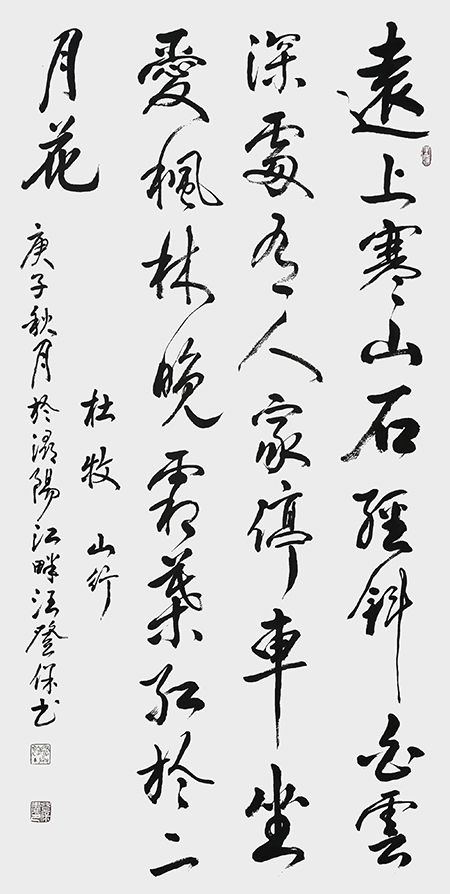 遠上寒山石經斜白雲
深處有人家停車坐
愛楓林晚霜葉紅於二
月花
杜牧 山行
庚子秋月於潯陽江畔汪登保书